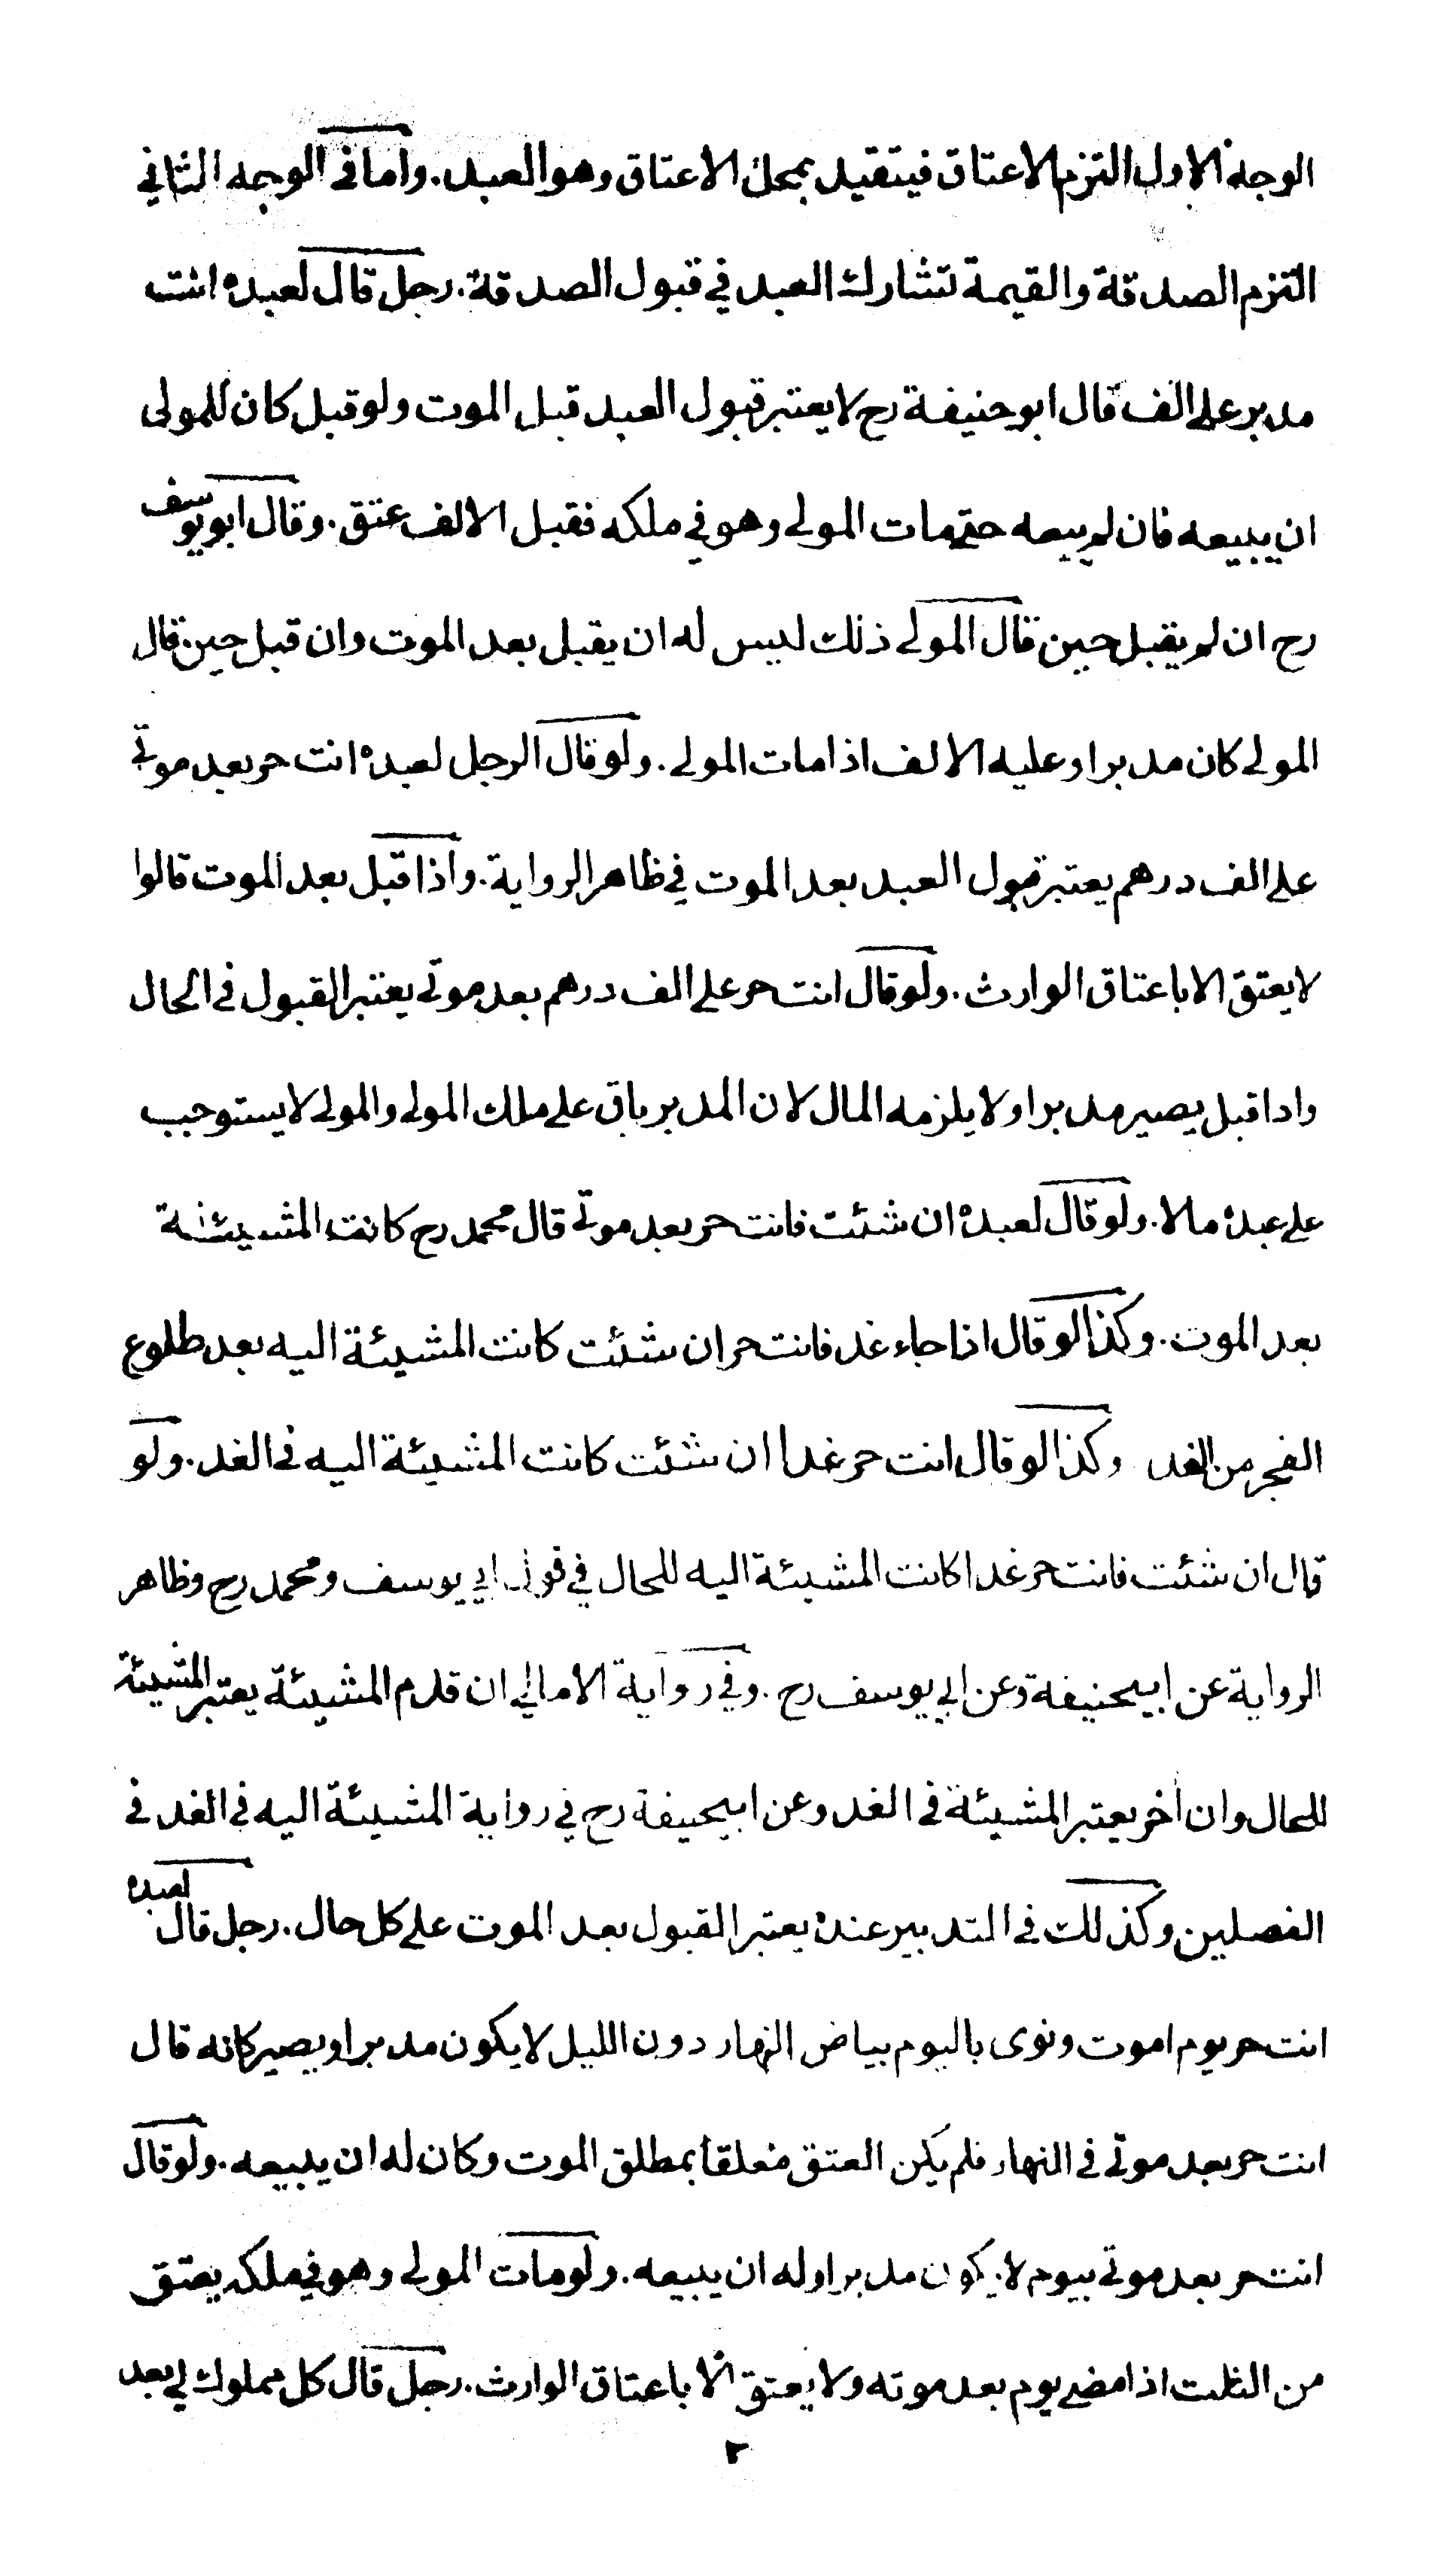 الوجه الاول التزم الاعتاق فيتقيد بمحل الاعتاق وهو العبد. واما في الوجه الثاني
التزم الصدقة والقيمة تشارك العبد في قبول الصدقة. رجل قال لعبده انت
مدبر على الف قال ابو حنيفة رح لا يعتبر قبول العبد قبل الموت ولو قبل كان للمولى
ان يبيعه فان لم يبيعه حتى مات المولى وهو في ملكه فقبل الالف عتق. وقال ابو يوسف
رح ان لم يقبل حين قال المولى ذلك ليس له ان يقبل بعد الموت وان قبل حين قال
المولى كان مدبرا وعليه الالف اذا مات المولى. ولو قال الرجل لعبده انت حر بعد موتي
على الف درهم يعتبر قبول العبد بعد الموت في ظاهر الرواية. واذا قبل بعد الموت قالوا
لا يعتق الا باعتاق الوارث. ولو قال انت حر على الف درهم بعد موتي يعتبر القبول في الحال
واذا قبل يصير مدبرا ولا يلزمه المال لان المدبر باق على ملك المولى والمولى لا يستوجب
على عبده مالا. ولو قال لعبده ان شئت فانت حر بعد موتي قال محمد رح كانت المشيئة
بعد الموت. وكذا لو قال اذا جاء غد فانت حر ان شئت كانت المشيئة اليه بعد طلوع
الفجر من الغد وكذا لو قال انت حر غدا ان شئت كانت المشيئة اليه في الغد. ولو
قال ان شئت فانت حر غدا كانت المشيئة اليه للحال في قول ابي يوسف ومحمد رح وظاهر
الرواية عن ابيحنيفة وعن ابي يوسف رح. وفي رواية الامالي ان قدم المشيئة يعتبر المشيئة
للحال وان اخر يعتبر المشيئة في الغد وعن ابيحنيفة رح في رواية المشيئة اليه في الغد في
الفصلين وكذلك في التدبير عنده يعتبر القبول بعد الموت على كل حال. رجل قال لعبده
انت حر يوم اموت ونوى باليوم بياض النهار دون الليل لا يكون مدبرا ويصير كانه قال
انت حر بعد موتي في النهار فلم يكن العتق معلقا بمطلق الموت وكان له ان يبيعه. ولو قال
انت حر بعد موتي بيوم لا يكون مدبرا وله ان يبيعه. ولو مات المولى وهو في ملكه يعتق
من الثلث اذا مضى يوم بعد موته ولا يعتق الا باعتاق الوارث. رجل قال كل مملوك لي بعد